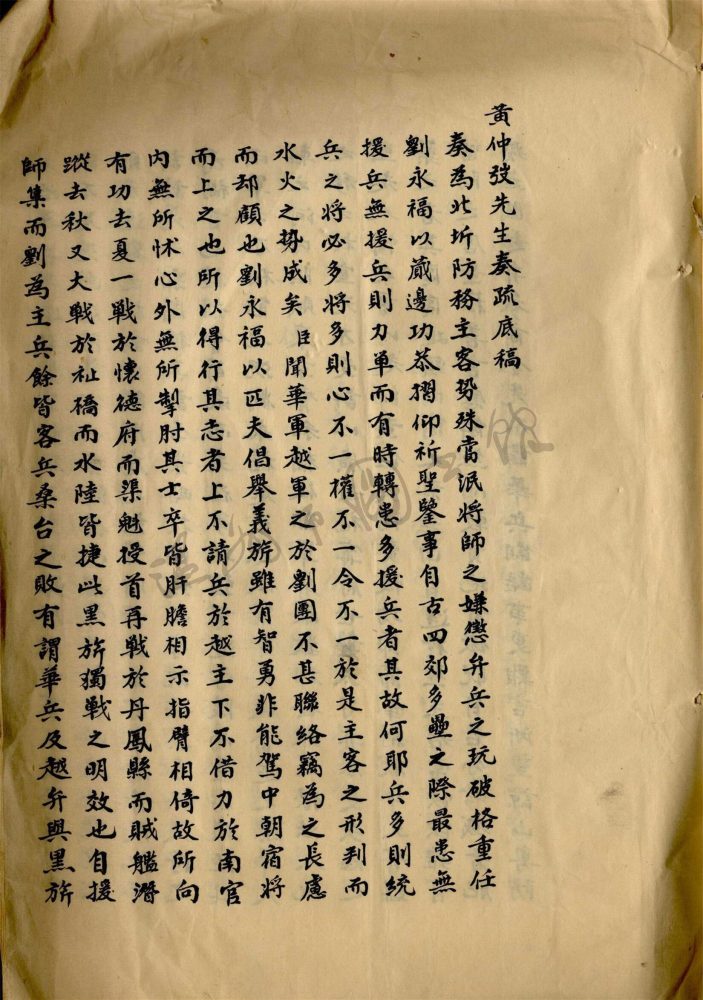 黃仲弢先生奏疏底稿
奏為北圻防務主客勢殊當泯將帥之嫌懲弁兵之玩破格重任
劉永福以蕆邊功恭摺仰祈聖鑒事自古四郊多壘之際最患無
援兵無援兵則力單而有時轉患多援兵者其故何耶兵多則統
兵之將必多將多則心不一權不一令不一於是主客之形判而
水火之勢成矣臣聞華軍越軍之於劉團不甚聯絡竊為之長慮
而却顧也劉永福以匹夫倡舉義旂雖有智勇非能駕中朝宿將
而上之也所以得行其志者上不請兵於越主下不借力於南官
內無所怵心外無所掣肘其士卒皆肝膽相示指臂相倚故所向
有功去夏一戰於懷德府而渠魁授首再戰於丹鳳縣而賊艦潛
蹤去秋又大戰於祉橋而水陸皆捷此黑旂獨戰之明效也自援
師集而劉為主兵餘皆客兵桑台之敗有謂華兵及越弁與黑旂